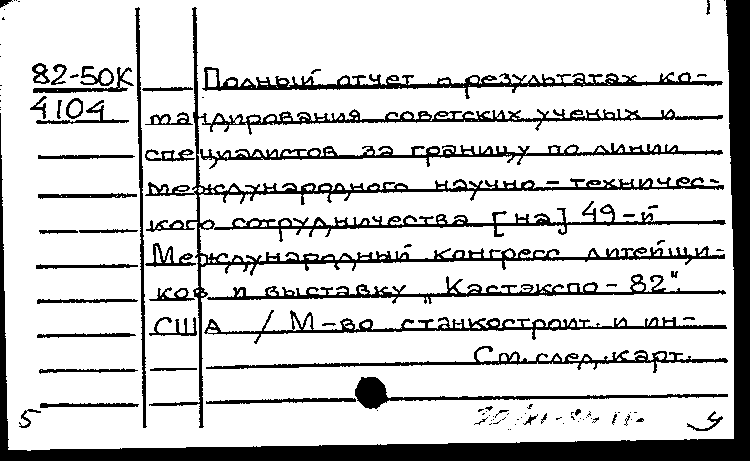 82-50К Полный отчет о результатах ко-
4104 мандирования советских ученых и
специалистов за границу по линии
международного научно-техничес-
кого сотрудничества [на] 49-й
Международный конгресс литейщи-
ков и выставку „Кастэкспо-82".
США / М-во станкостроит. и ин-
См. след. карт.
5